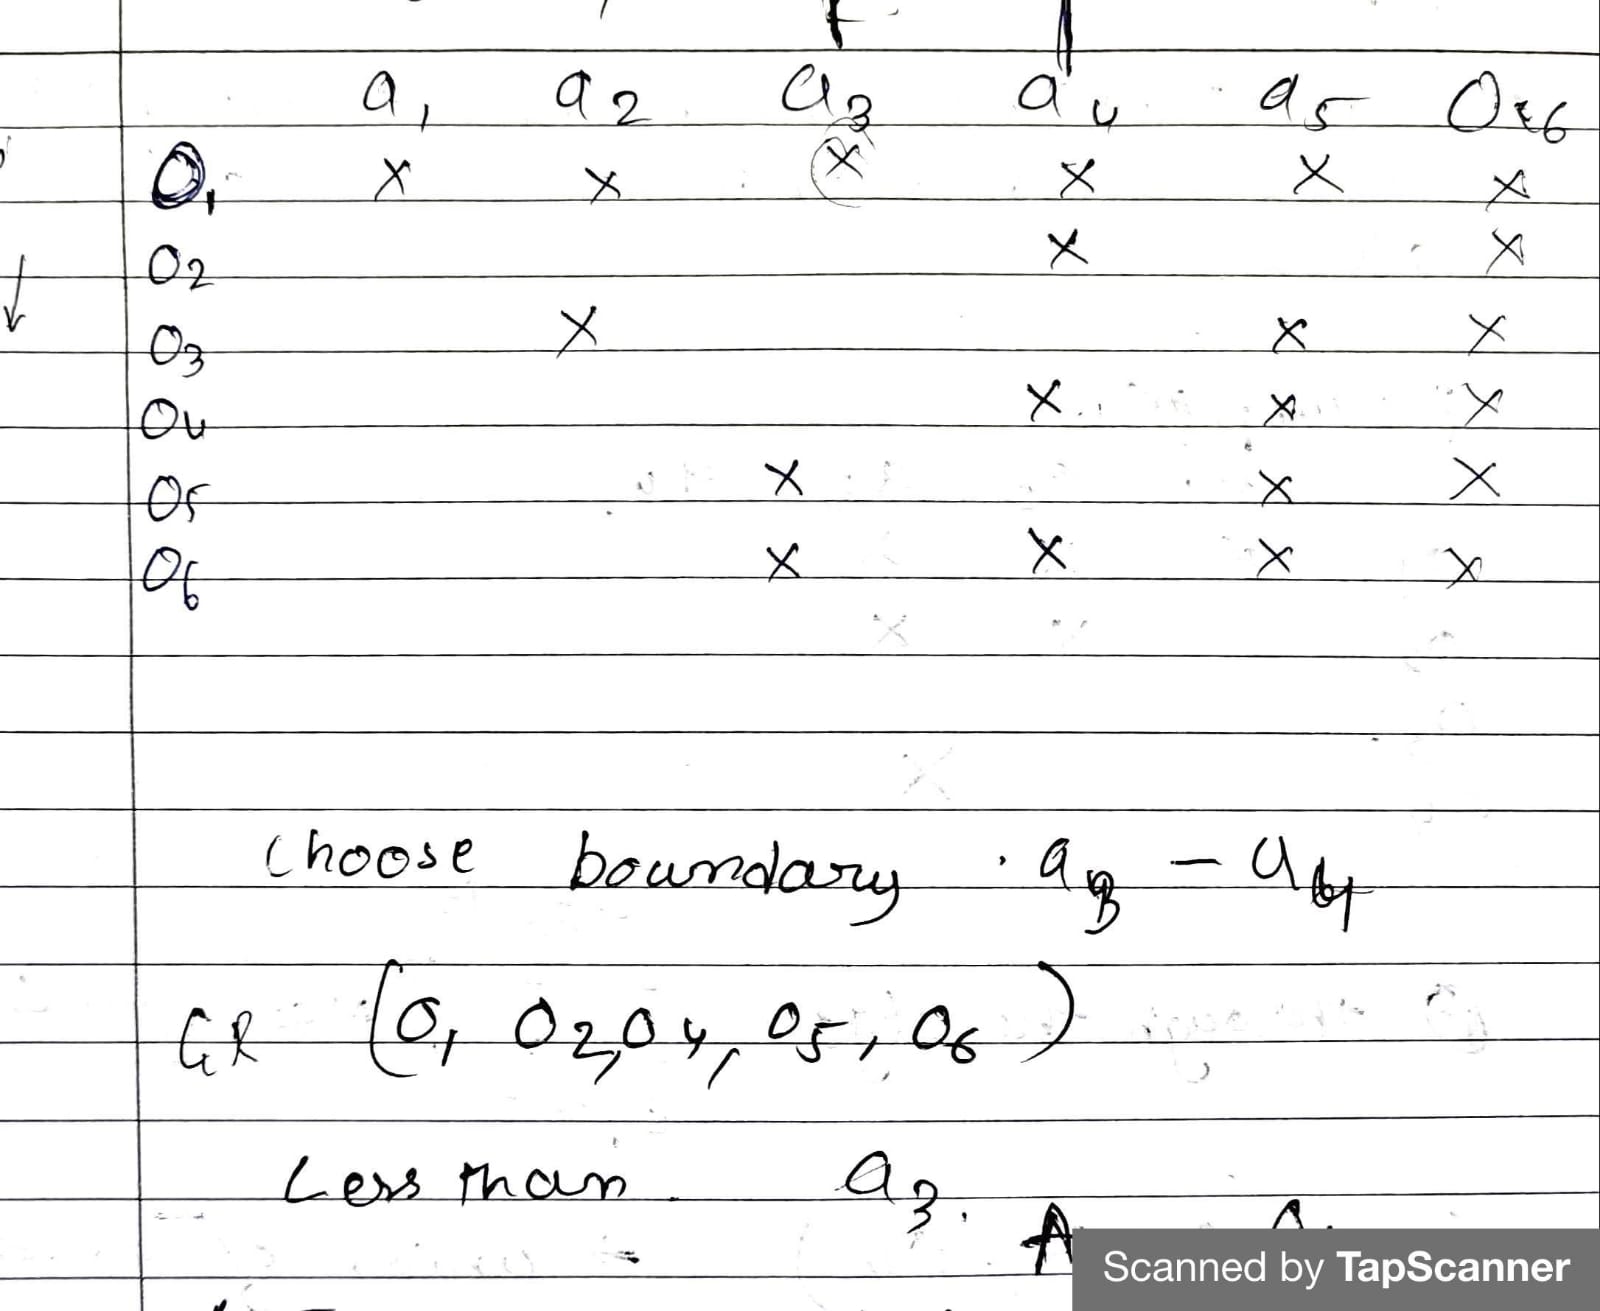 a1 a2 a3 a4 a5 a6
O1 x x x x x x
O2 x x
O3 x x x
O4 x x x
O5 x x x
O6 x x x x
choose boundary. a3 - a4
GR (O1 O2, O4, O5, O6)
Less than a3.
Scanned by TapScanner